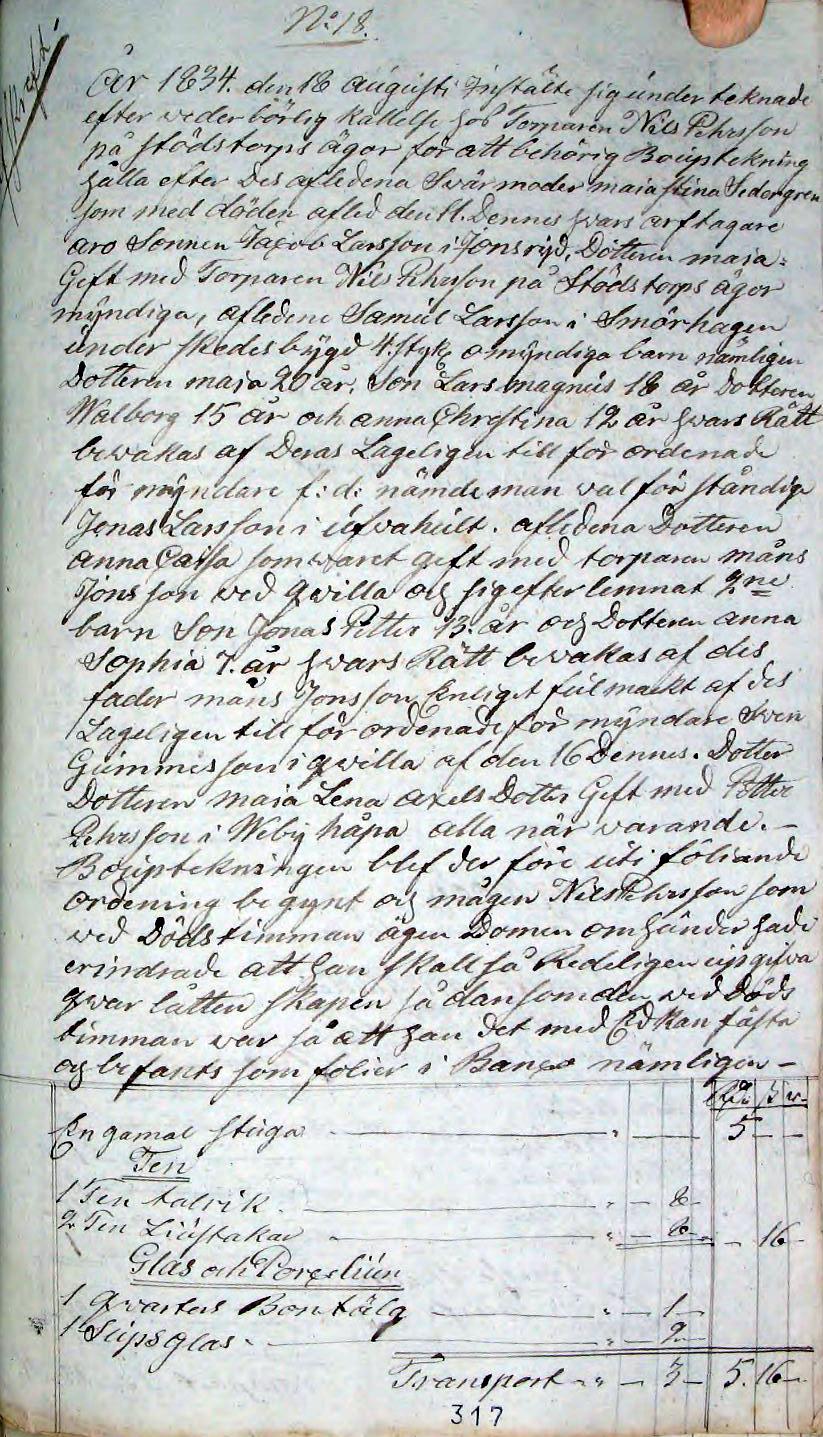 No 18.
År 1834. den 18 augusti Instälte sig under teknade
efter wederbörlig kallelse hos Torparen Nils Pehrsson
på stödstorps ägor för att behörig Bouptekning
hålla efter Des afledena Swärmoder maia stina Sedergren
som med döden afled den 11. Dennes hvars arftagare
äro Sonnen Jacob Larsson i Jonsryd, Dotteren maia:
Geft med Torparen Nils Pehrsson på Stödstorps ägor
myndiga, afledene Samuel Larsson i Smörhagen
under skedesbygd 4. styk omyndiga barn nämligen
Dotteren maia 20 år. Son Lars magnus 18 år Dotteren
Walborg 15 år och anna Christina 12 år hvars Rätt
bewakas af Deras Lageligen till för ordenade
för myndare f:d: nämdeman wal för ståndige
Jonas Larsson i ufvahult. afledena Dotteren
anna Caisa som waret geft med torparen måns
Jonsson wed qwilla og sig efter lemnat 2ne
barn Son Jonas Petter 13. år og Dotteren anna
Sophia 7. år hvars Rätt bewakas af des
fader måns Jonsson Enliget fulmackt af des
Lageligen till för ordenade för myndare Swen
Gummesson i qwilla af den 16 Dennes. Dotter
Dotteren maia Lena axels Dotter Geft med Petter
Pehrsson i Weby håpa alla när warande.-
Bouptekningen blef der före uti föliande
ordening begynt og mågen Nils Pehrsson som
wed Dödstimman ägen Domen om händer hade
erindrade att han skall så Redeligen upgifva
qwarlåtten skapen så dan som den wed Döds
timman war så att han det med Ed kan fästa
og befants som folier i Banco nämligen -
Rd ß r
En gamal stuga " 5
Ten
1 Ten talrik " 8
2 Ten Liustakar " 8 16
Glas och Porcelün
1 qwarters Bontälg " 1
1 Sups glas " 2
Transport " 3 5. 16
317